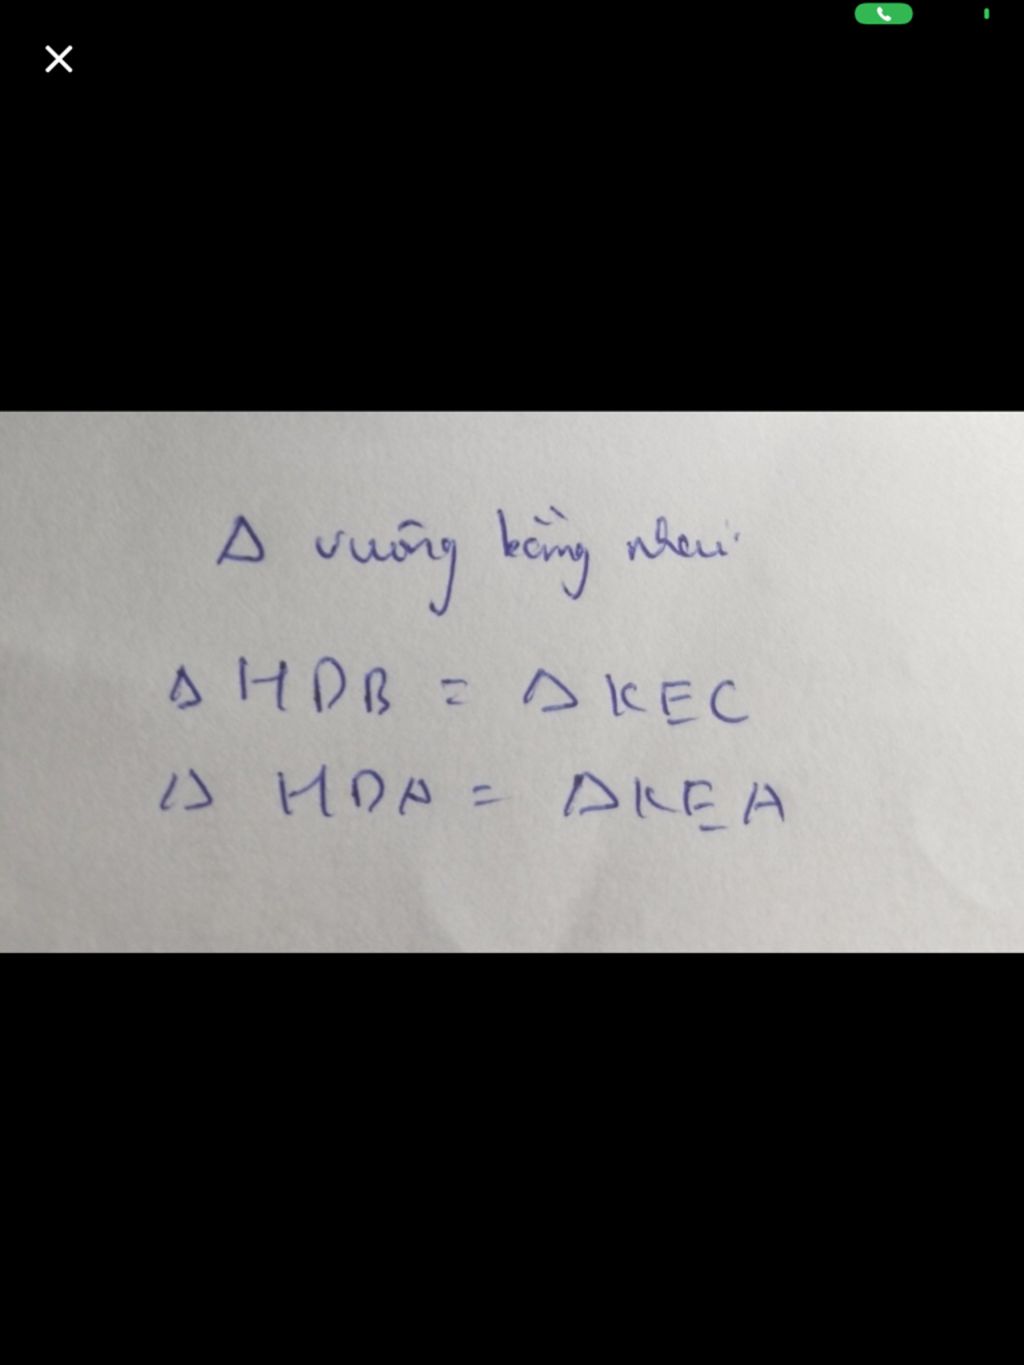 Δ vuông bằng nhau:
Δ HDB = Δ KEC
Δ HDA = Δ KEA